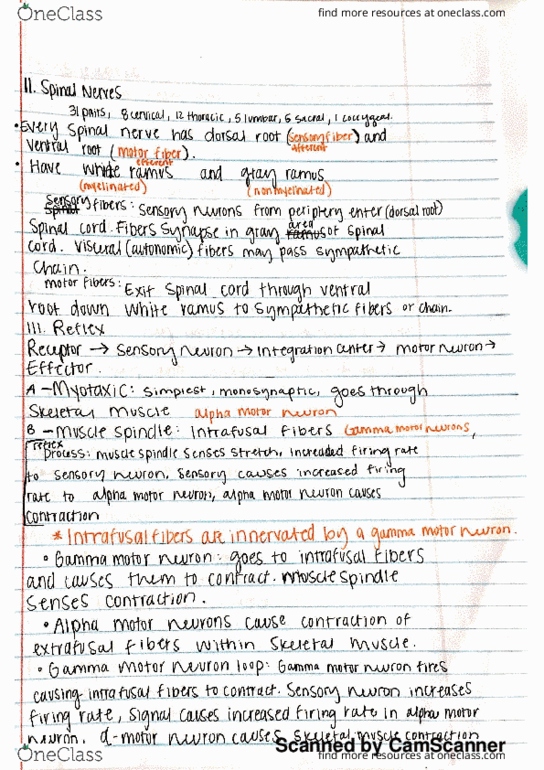 OneClass
find more resources at oneclass.com
II. Spinal Nerves
31 pairs, 8 cervical, 12 thoracic, 5 lumbar, 5 sacral, 1 coccygeal.
• Every Spinal nerve has dorsal root (sensory fiber) and
afferent
ventral root (motor fiber).
efferent
• Have white ramus and gray ramus
(myelinated) (nonmyelinated)
Sensory
Spinal fibers: Sensory neurons from periphery enter (dorsal root)
area
Spinal cord. Fibers Synapse in gray ramus of spinal
cord. Visceral (autonomic) fibers may pass sympathetic
Chain.
motor fibers: Exit Spinal cord through ventral
root down white ramus to Sympathetic fibers or chain.
III. Reflex
Receptor → Sensory neuron → integration center → motor neuron →
Effector.
A - Myotaxic: Simplest, monosynaptic, goes through
Skeletal Muscle alpha motor neuron
B - Muscle Spindle: Intrafusal fibers Gamma motor neurons,
reflex
Process: muscle spindle senses stretch, increaded firing rate
to sensory neuron, sensory causes increased firing
rate to alpha motor neuron, alpha motor neuron causes
contraction
* Intrafusal fibers are innervated by a gamma motor neuron.
• Gamma motor neuron: goes to intrafusal fibers
and causes them to contract. Muscle Spindle
senses contraction.
• Alpha motor neurons cause contraction of
extrafusal fibers within skeletal muscle.
• Gamma Motor neuron loop: Gamma motor neuron fires
causing intrafusal fibers to contract. Sensory neuron increases
firing rate, signal causes increased firing rate in alpha motor
neuron. α-motor neuron causes skeletal muscle contraction
Scanned by CamScanner
OneClass
find more resources at oneclass.com